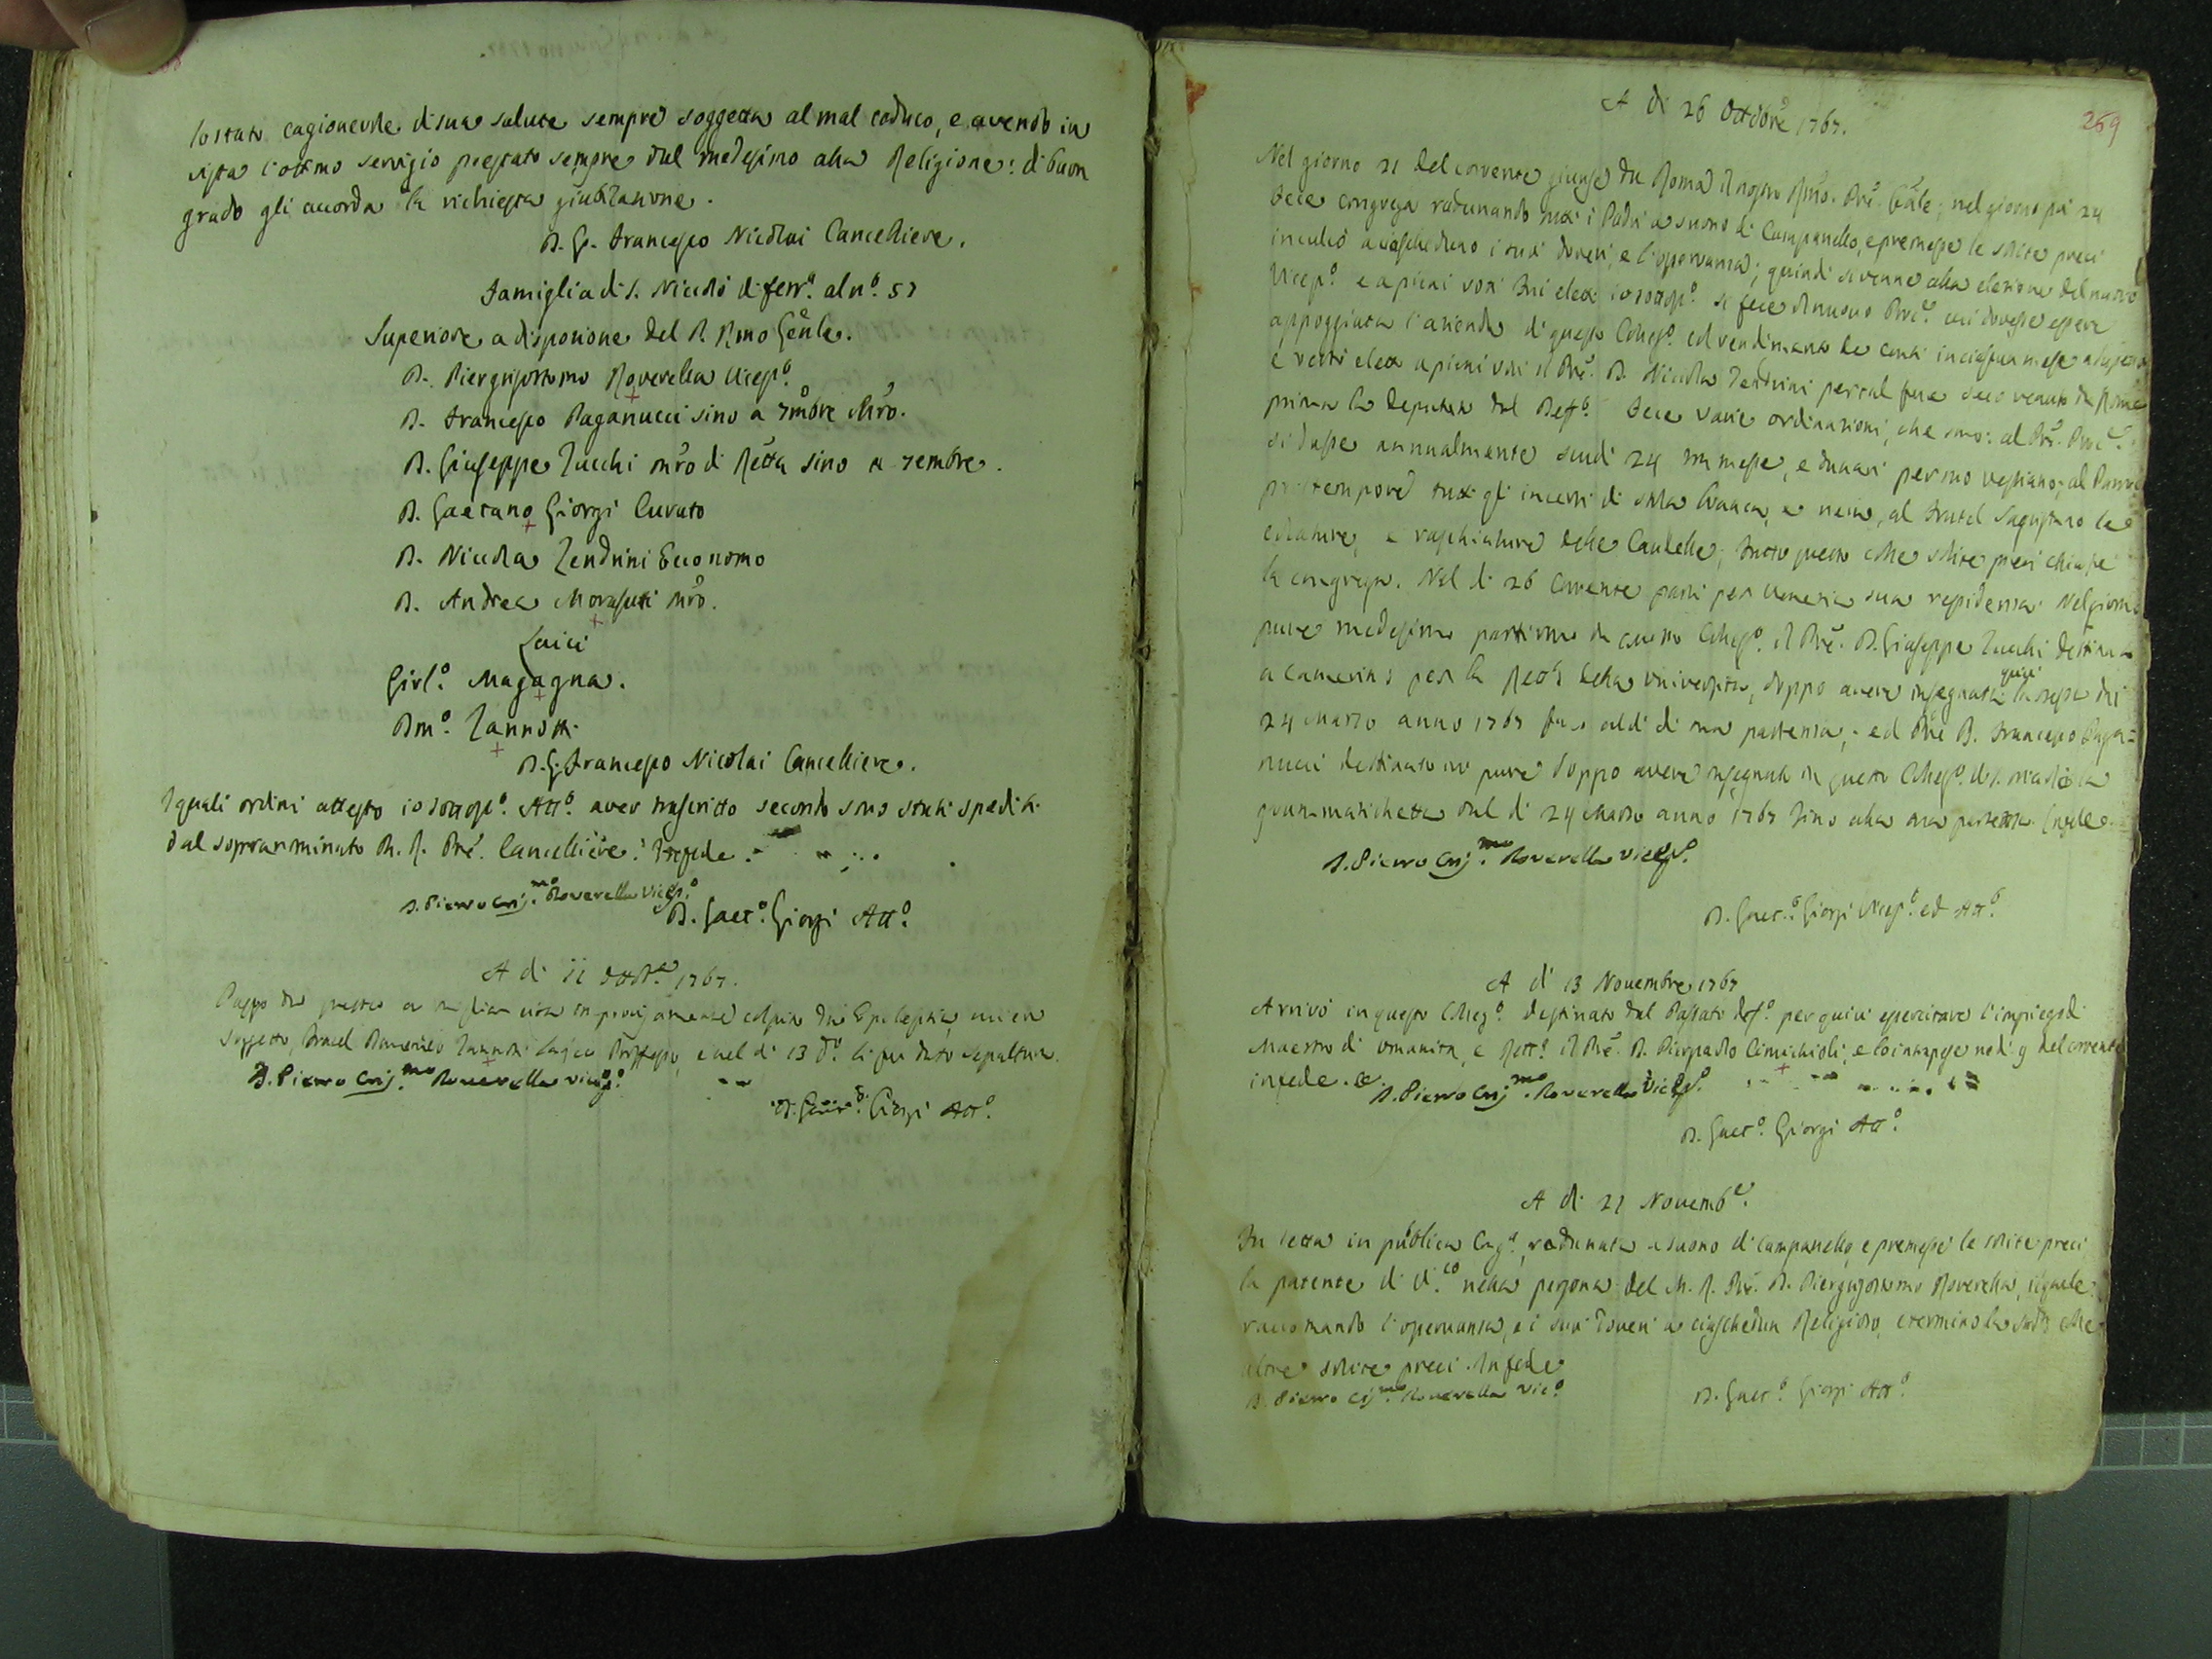 lo stato cagionevole di sua salute sempre soggetta al mal caduco, e avendo in
vista l'ottimo servigio prestato sempre dal medesimo alla Religione: di buon
grado gli accorda la richiesta giubilazione.
D. G. Francesco Nicolai Cancelliere.
Famiglia di S. Nicolò di ferr.ª al nº. 57
Superiore a disposizione del P. Rmo Genle.
D. Piergrisostomo Roverella Vicepº.
D. Francesco Paganucci sino a 7mbre Mro.
D. Giuseppe Zucchi mro di Retta sino a 7embre.
D. Gaetano Giorgi Curato
D. Nicola Zendrini Economo
D. Andrea Morasuti Mro.
Laici
Girlº. Magagna.
Dmº. Zannotti
D. G. Francesco Nicolai Cancelliere.
I quali ordini attesto io sottosº. Attº. aver trascritto secondo sono stati spediti
dal soprannominato M. R. Pre. Cancelliere. In fede.
D. Pietro Grismo Roverella Vicepº.
D. Gaetº. Giorgi Attº.
A di 11 Ottbre 1767.
Passò da questa a miglior vita improvisamente colpito da Epilepsia
soggetto, Fratel Domenico Zannotti laico Professo, e nel di 13 dº. li fu dato sepoltura.
D. Pietro Grismo Roverella Vicepº.
D. Gaetº. Giorgi Attº.
259
A di 26 Ottobre 1767.
Nel giorno 21 del corrente giunse da Roma il nostro Rmo. Pre. Gnle; nel giorno poi 24
fece congrega radunando tutti i Padri a suono di Campanello, e premesse le solite preci
inculcò a ciascheduno i suoi doveri, e l'osservanza; quindi si venne alla elezione del nuovo
Vicepº. e a pieni voti fui eletto io sottosº. si fece di nuovo Procre. cui dovesse essere
appoggiata l'azienda di questo Collegº. ed rendimento de conti in ciascun mese
e restò eletto a pieni voti il Pre. D. Nicola Zendrini per tal fine seco venuto da Roma
prima la deputato dal Deffº. Fece varie ordinazioni, che sono: al Pre. Procre.
si dasse annualmente scudi 24 e ducati per suo vestiario; al Parroco
pro tempore tutti gli incerti di stola bianca, e nera, al Fratel Sagristano le
colature, e raschiature delle Candelle; fatto questo colle solite preci chiuse
la congrega. Nel di 26 corrente partì per Venezia sua residenza. Nel giorno
pure medesimo partirono da questo Collegº. il Pre. D. Giuseppe Zucchi destinato
a Camerino per la Retta della Università, doppo avere insegnata quivi la stessa dai
24 Marzo anno 1767 fino al di di sua partenza; ed Pre D. Francesco Paga=
nucci destinato ivi pure doppo avere insegnato in questo Collegº. di S. Nicolò la
grammatichetta dal di 24 Marzo anno 1767 sino alla sua partenza. In fede
D. Pietro Grismo Roverella Vicepº.
D. Gaetº. Giorgi Vicepº. ed Attº.
A di 13 Novembre 1767
Arrivò in questo Collegº. destinato dal Passato defº. per quivi essercitare l'impiego di
Maestro di Umanità, e Rettª. il Pre. D. Pierpaolo Cimichioli, e lo intraprese nel di 9 del corrente
in fede. &.
D. Pietro Grismo Roverella Vicepº.
D. Gaetº. Giorgi Attº.
A di 21 Novembe.
Fu letta in publica Cogª., radunata a suono di Campanello, e premesse le solite preci
la patente di Vico nella persona del M. R. Pre. D. Piergrisostomo Roverella, il quale
raccomandò l'osservanza, e i suoi doveri a ciaschedun Religioso, e terminò la sudª colle
altre solite preci. In fede
D. Pietro Grismo Roverella Vicº
D. Gaetº. Giorgi Attº.